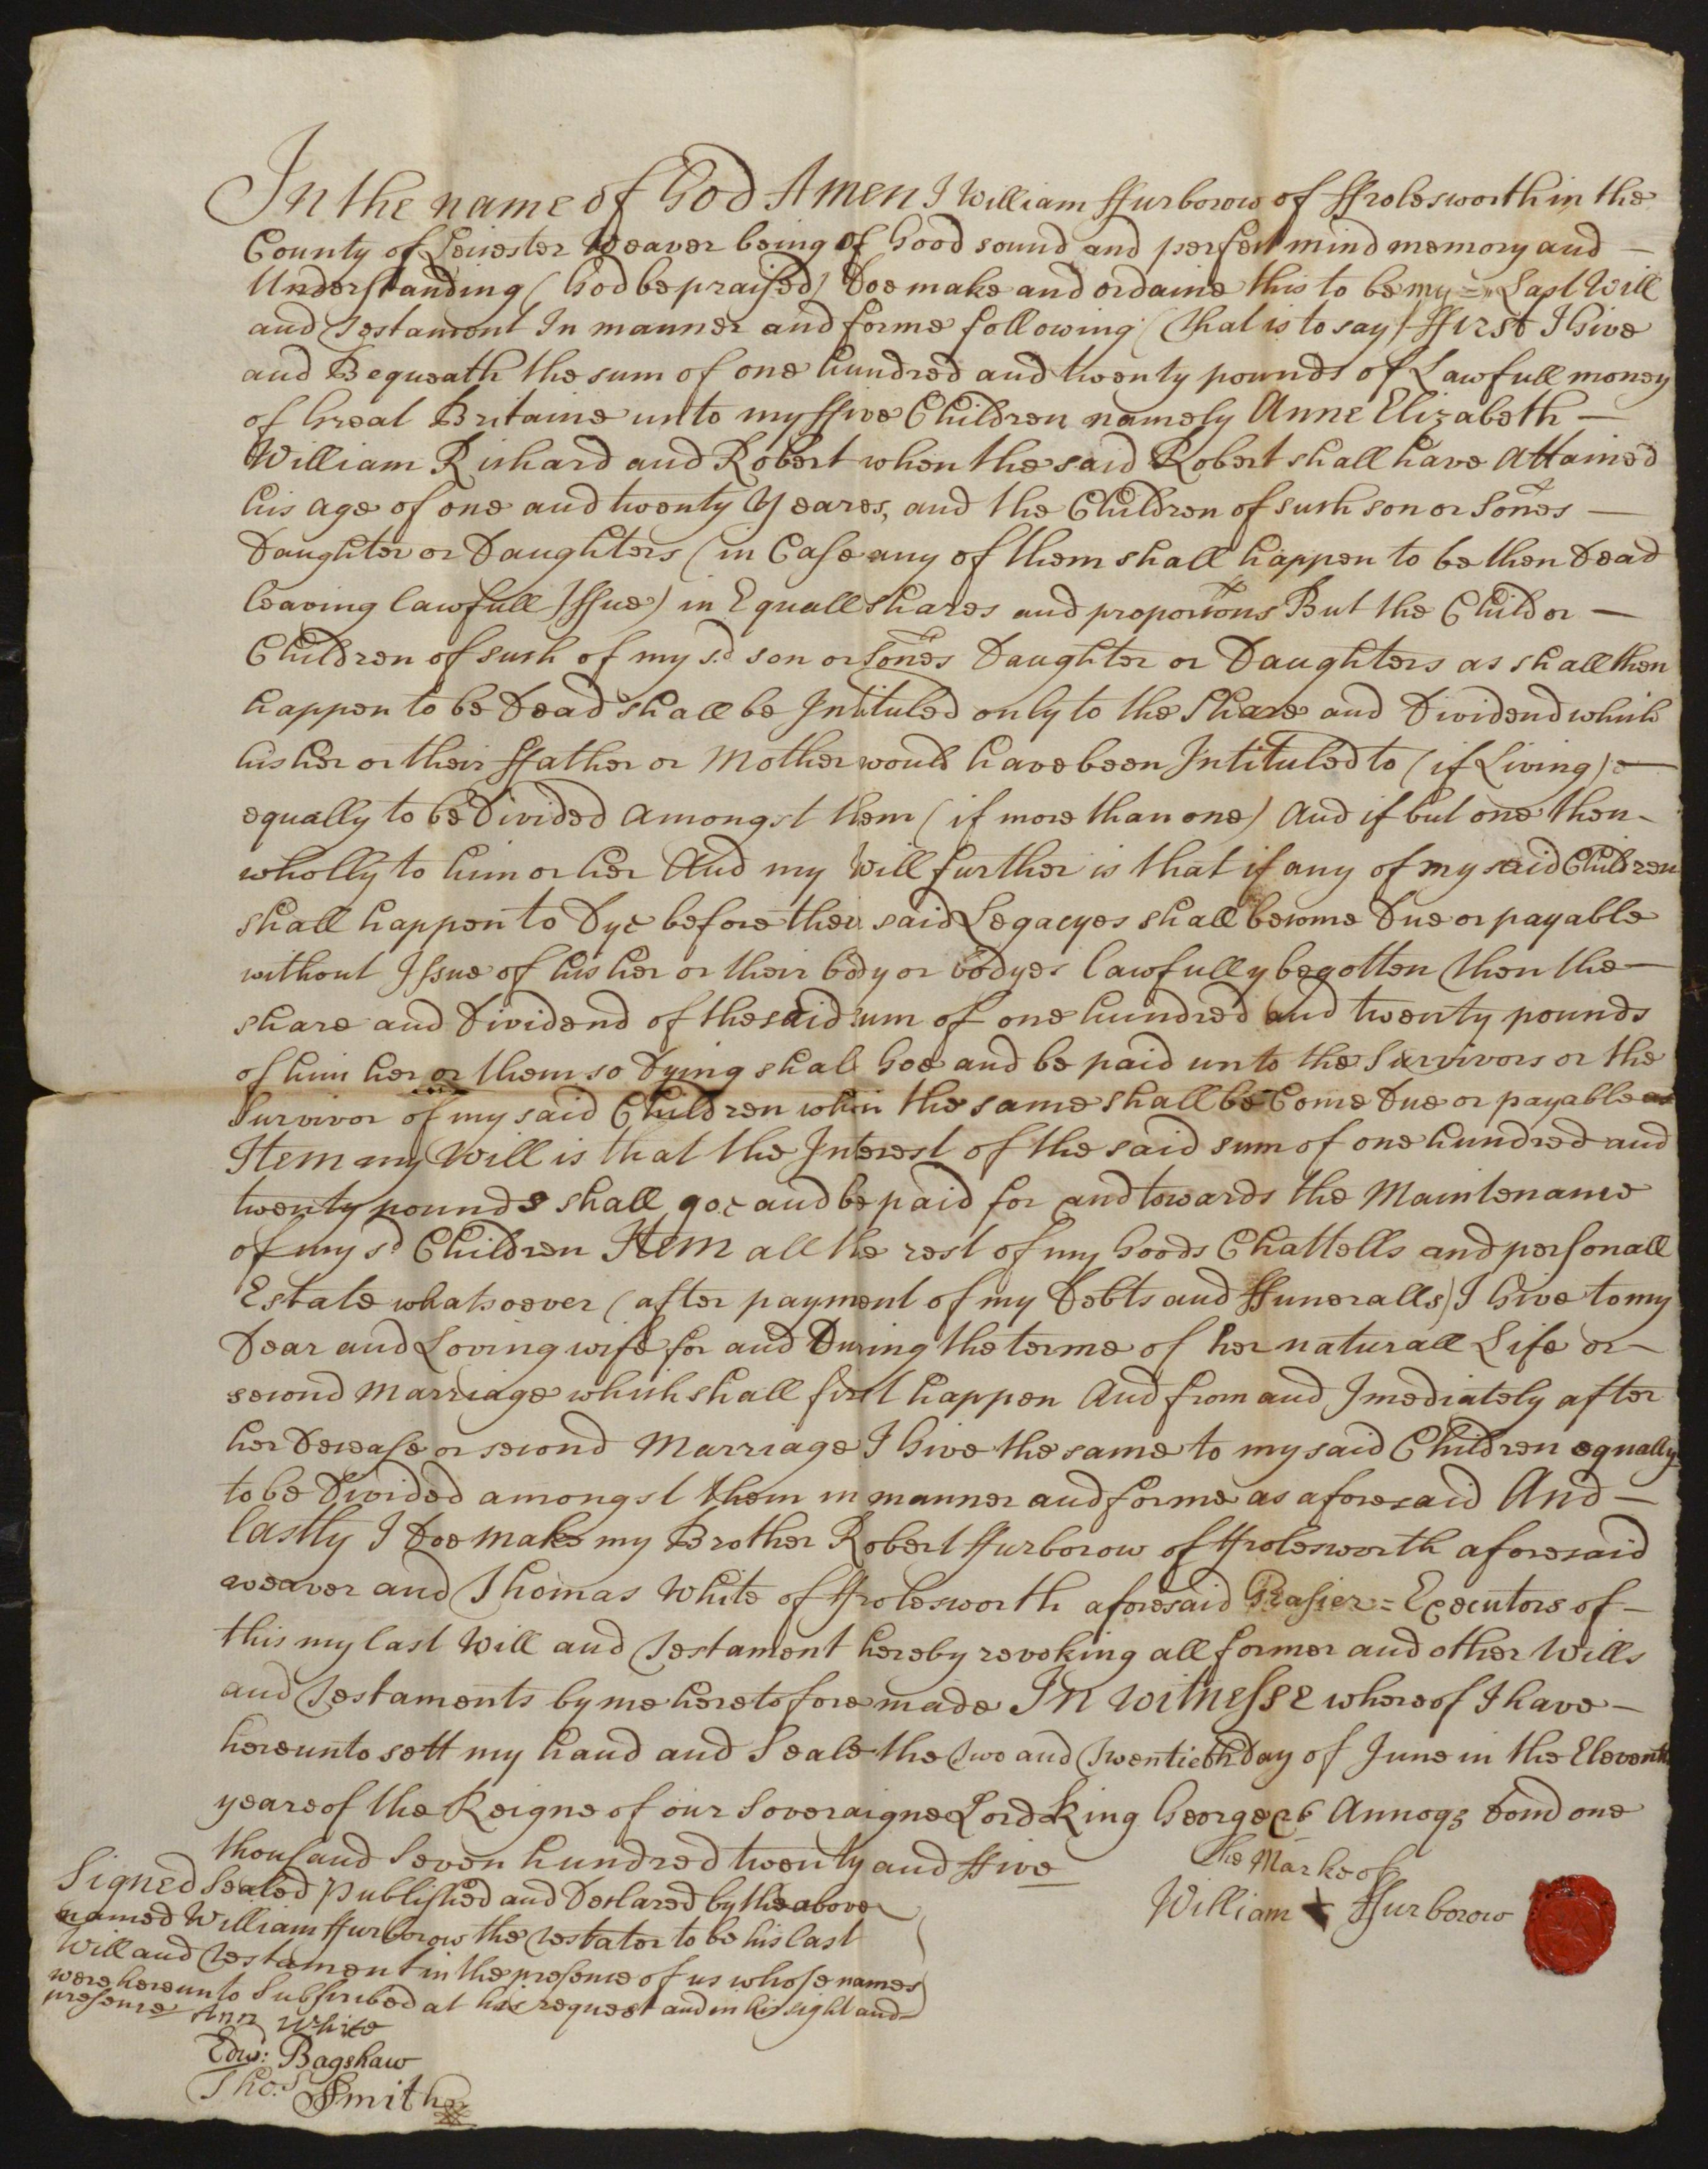 In the name of God Amen I William ffurborow of ffrolesworth in the
County of Leicester Weaver being of Good sound and perfect mind memory and —
Understanding (God be praised) Doe make and ordaine this to be my = Last Will
and Testament In manner and forme following (that is to say) ffirst I Give
and Bequeath the sum of one hundred and twenty pounds of Lawfull money
of Great Britaine unto my ffive Children namely Anne Elizabeth —
William Richard and Robert when the said Robert shall have Attained
his age of one and twenty Yeares, and the Children of such son or sones —
Daughter or Daughters (in Case any of them shall happen to be then Dead
leaving lawfull Issue) in Equall shares and proportions But the Child or —
Children of such of my sd son or sones Daughter or Daughters as shall then
happen to be Dead shall be Intituled only to the Share and Dividend which
his her or their ffather or Mother would have been Intituled to (if Living) —
equally to be Divided amongst them (if more than one) And if but one then -
wholly to him or her And my Will further is that if any of my said Children
shall happen to Dye before their said Legacyes shall become Due or payable
without Issue of his her or their body or bodyes lawfully begotten then the —
share and Dividend of the said sum of one hundred and twenty pounds
of him her or them so Dying shall Goe and be paid unto the Survivors or the
Survivor of my said Children when the same shall be Come Due or payable
Item my Will is that the Interest of the said sum of one hundred and
twenty pounds shall goe and be paid for and towards the Maintenance
of my sd Children Item all the rest of my Goods Chattells and personall
Estate whatsoever (after payment of my Debts and ffuneralls) I Give to my
Dear and Loving wife for and During the terme of her naturall Life or —
second Marriage which shall first happen And from and Imediately after
her Decease or second Marriage I Give the same to my said Children equally
to be Divided amongst them in manner and forme as aforesaid And —
lastly I Doe make my Brother Robert ffurborow of ffrolesworth aforesaid
weaver and Thomas White of ffrolesworth aforesaid Grasier = Executors of —
this my last Will and Testament hereby revoking all former and other Wills
and Testaments by me heretofore made In Witnesse whereof I have —
hereunto sett my hand and Seale the Two and Twentieth Day of June in the Eleventh
yeare of the Reigne of our Soveraigne Lord King George &c Annoq; Domi one
thousand Seven hundred twenty and ffive
The Marke of
William + ffurborow
Signed Sealed Published and Declared by the above
named William ffurborow the testator to be his last
Will and Testament in the presence of us whose names
were hereunto Subscribed at his request and in his sight and
presence
Ann White
Edw: Bagshaw
Tho: Smith